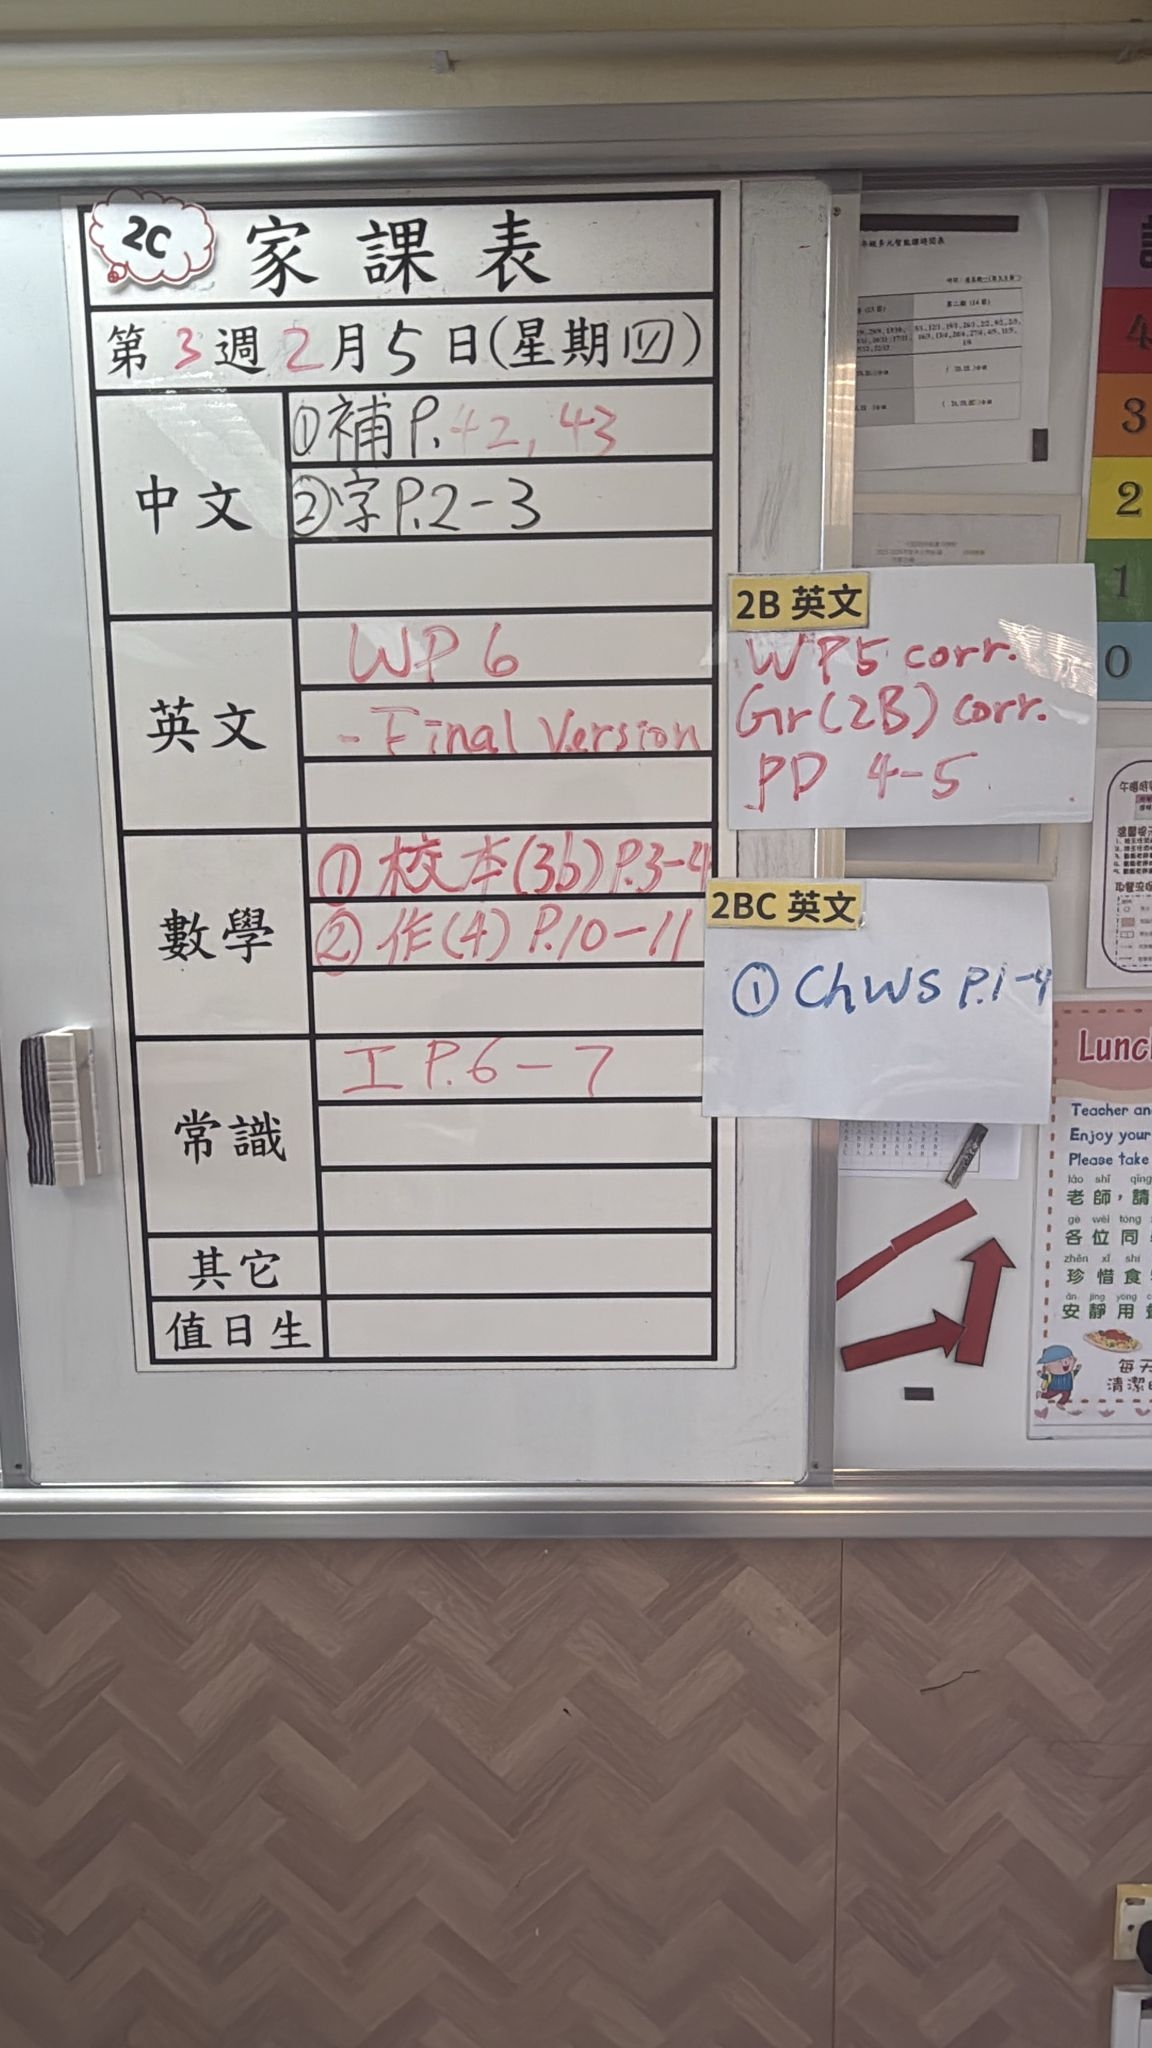 2C
家課表
第3週2月5日(星期四)
中文
①補P.42,43
②字P.2-3
英文
WP6
- Final Version
數學
①校本(3b)P.3-4
②作(4)P.10-11
常識
工P.6-7
其它
值日生
2B 英文
WP5 corr.
Gr(2B) corr.
PD 4-5
2BC 英文
① ChWS P.1-4
年級多元智能課時間表
第二期 (14 節)
4
3
2
1
0
Lunc
Teacher an
Enjoy your
Please take
lǎo shī qǐng
老師，請
gè wèi tóng
各位同
zhēn xī shí
珍惜食
ān jìng yòng
安靜用
每天
清潔